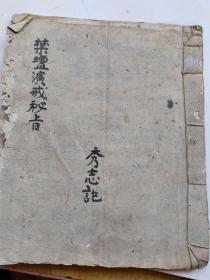 禁壇演戒秘旨
秀志記